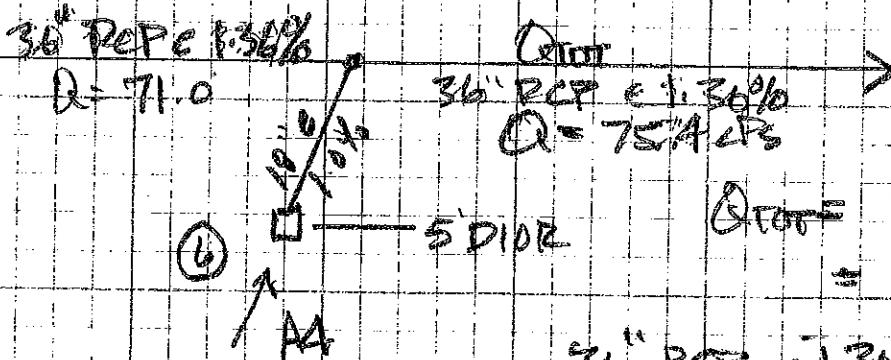 36" RCP @ 1.36%
Q = 71.0
QTOT
36" RCP @ 1.36%
Q = 75.4 cfs
18" @
1.0%
QTOT =
=
5' D10R
6
A4